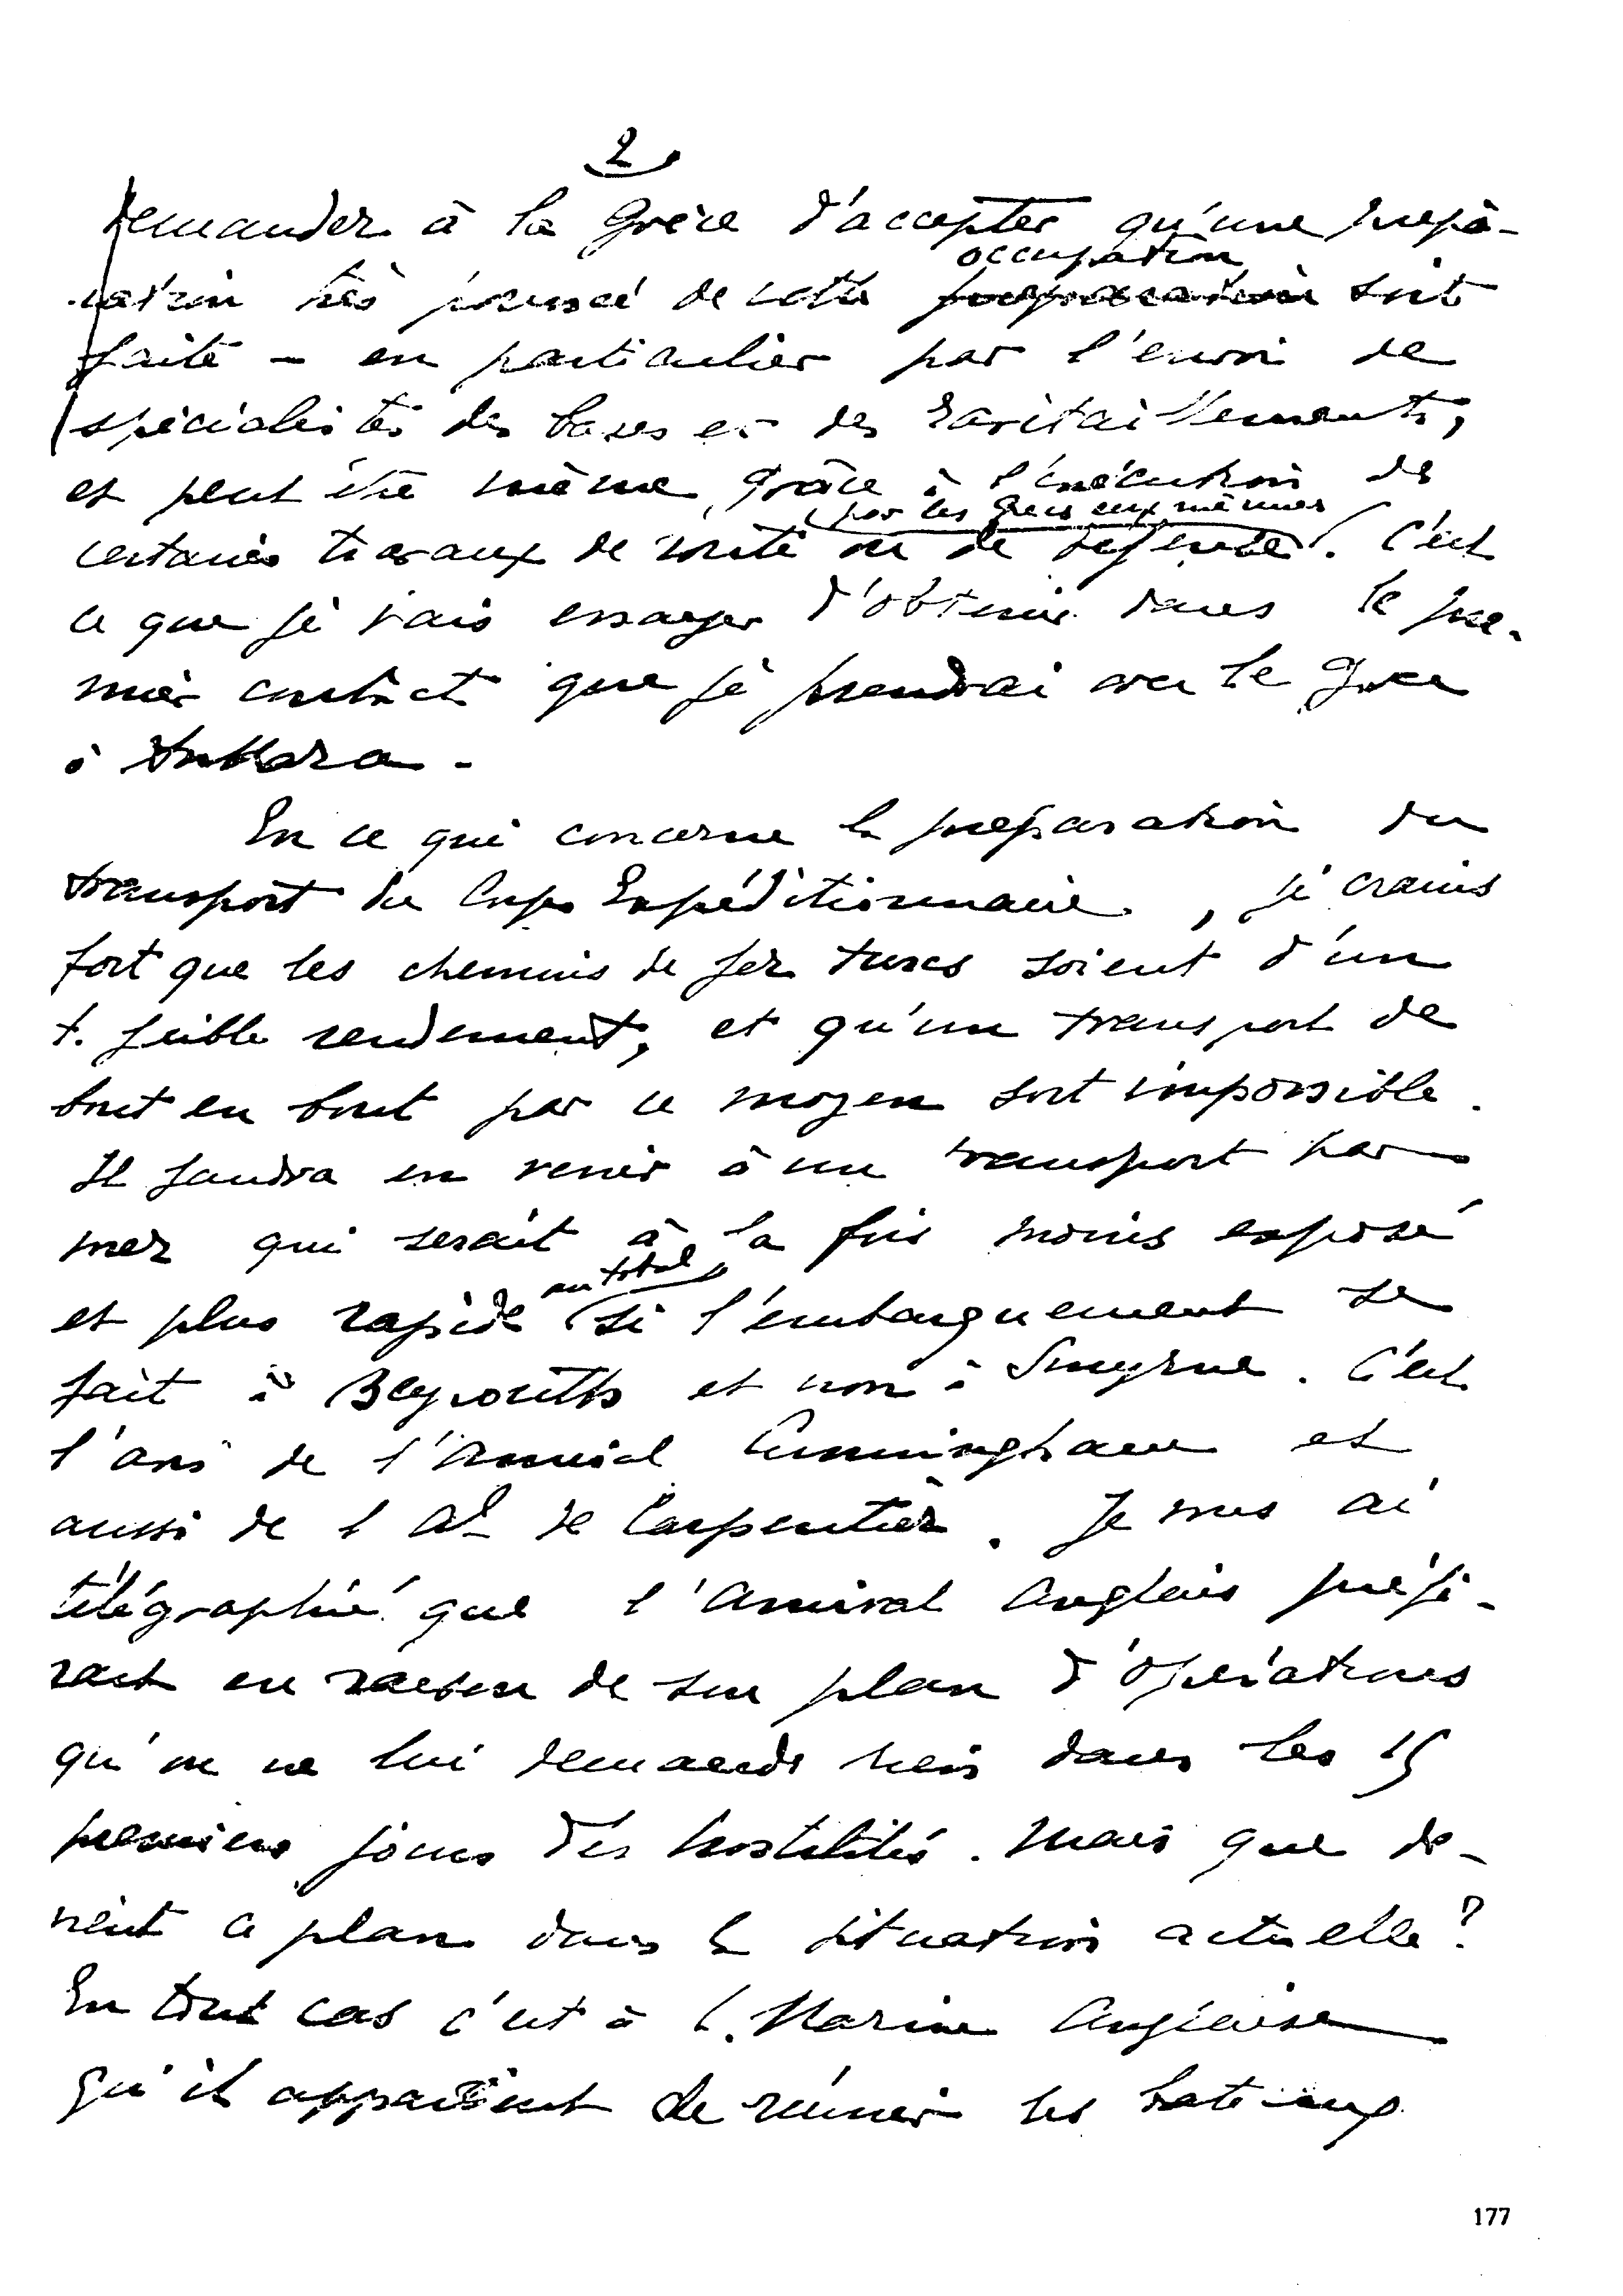 2
demander à la Grèce d'accepter qu'une prépa-
occupation
ration très poussée de cette preparation soit
faite - en particulier par l'envoi de
spécialistes des bases et des ravitaillements,
et peut être même, grâce à l'exécution de
par les Grecs eux mêmes
certains travaux de route ou de defense. C'est
ce que je vais essayer d'obtenir dans le pre-
mier contact que je prendrai avec le Grec
à Ankara.
En ce qui concerne la preparation du
transport du Corps Expéditionnaire, je crains
fort que les chemins de fer turcs soient d'un
t. faible rendement, et qu'un transport de
bout en bout par ce moyen soit impossible.
Il faudra en venir à un transport par
mer qui serait à la fois moins exposé
au total
et plus rapide si l'embarquement se
fait à Beyrouth et non à Smyrne. C'est
l'avis de l'Amiral Cunningham et
aussi de l'Al de Carpentier. Je vous ai
télégraphié que l'Amiral Anglais préfé-
rait en raison de son plan d'opérations
qu'on ne lui demande rien dans les 15
premiers jours des hostilités. Mais que de-
vient ce plan dans la situation actuelle?
En tout cas c'est à la Marine Anglaise
qu'il appartient de réunir les bateaux
177